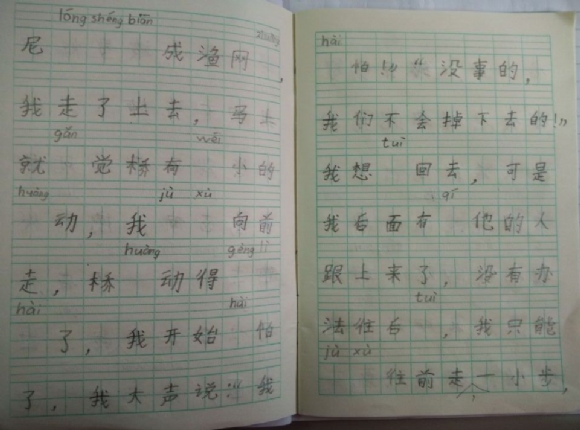 lóng shéng biān
尼 成渔网,
我走了上去,马上
gǎn
就 觉桥有 小的
huàng jù xù
动,我 向前
huàng gèng lì
走,桥 动得
hài hài
了,我开始 怕
了,我大声说:“我
hài
怕!”“没事的,
我们不会掉下去的!”
tuì
我想 回去,可是
qí
我后面有 他的人
跟上来了,没有办
tuì
法往后 ,我只能
jù xù
往前走一小步,